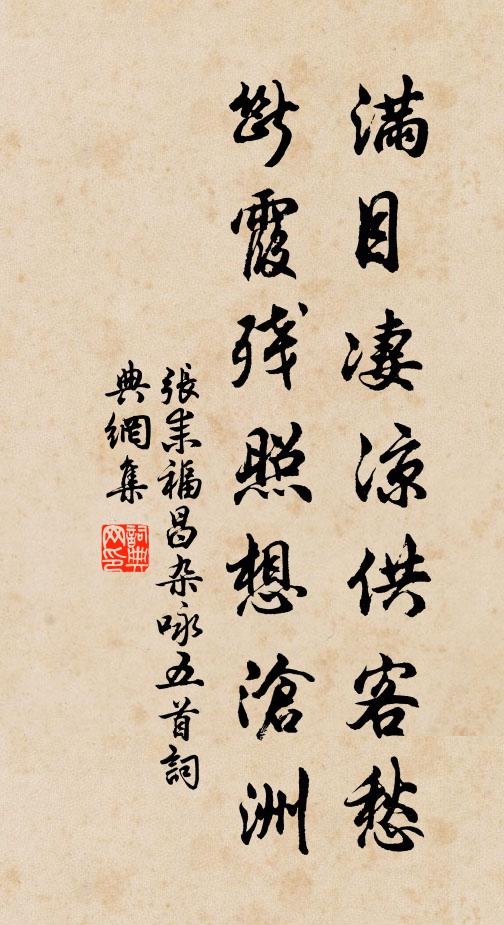 满目凄凉供客愁
断霞残照想沧洲
张耒福昌杂咏五首词
典網集
詞典網印